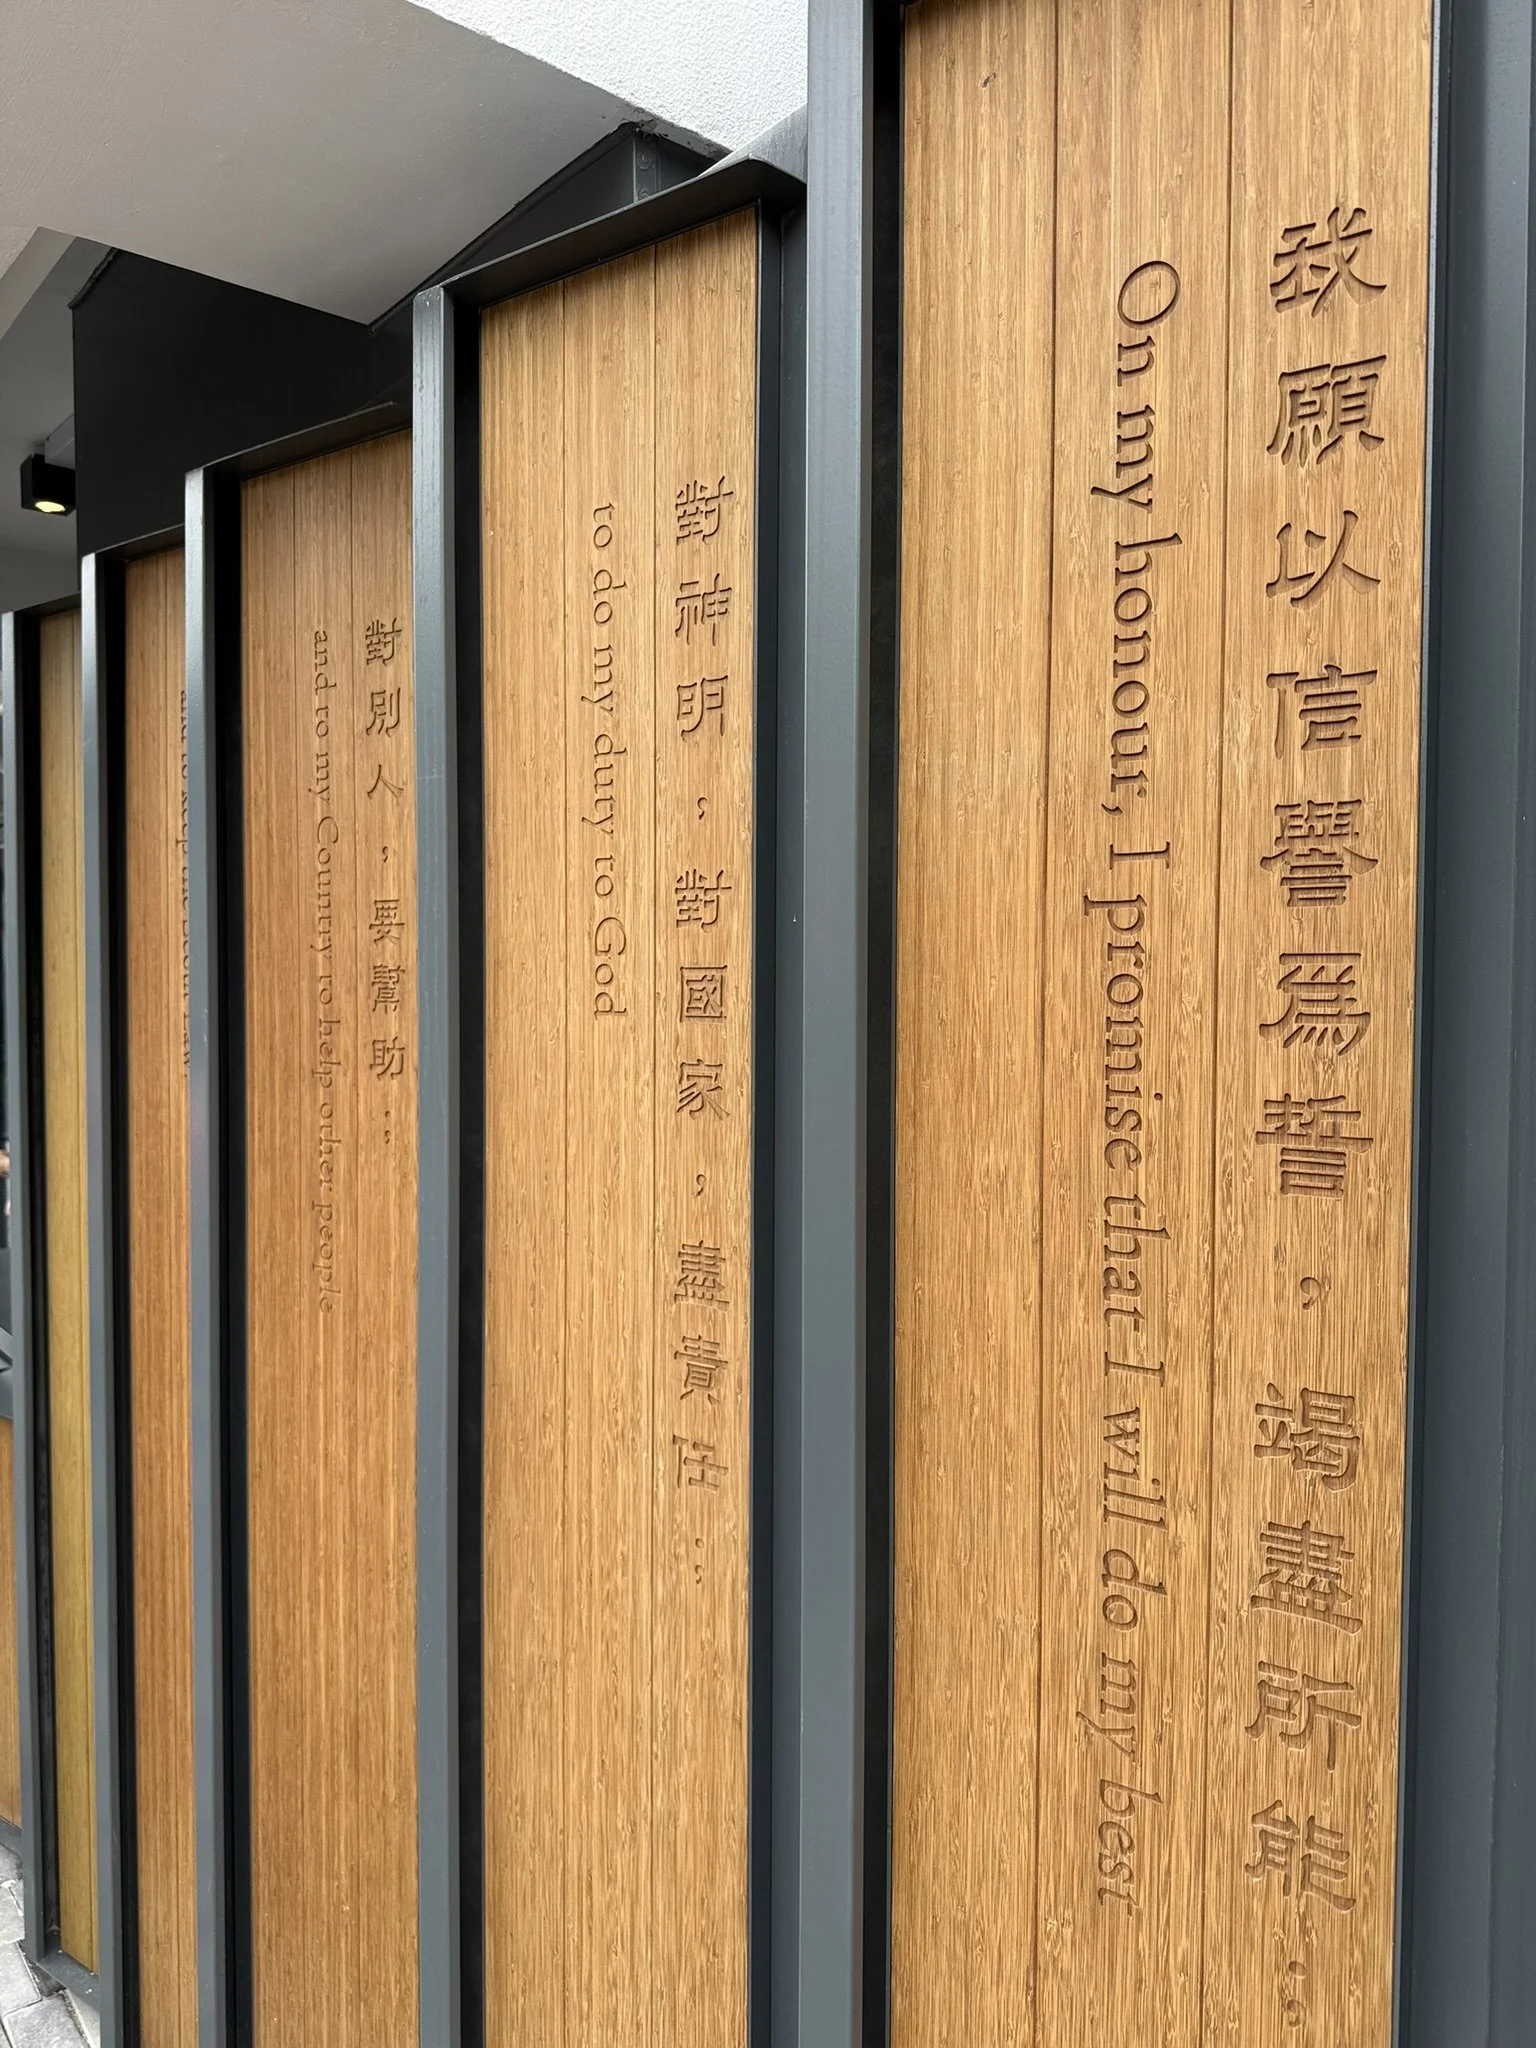 我願以信譽爲誓，竭盡所能：
On my honour, I promise that I will do my best
對神明，對國家，盡責任：
to do my duty to God
對別人，要幫助：
and to my Country to help other people
and to keep the Scout Law